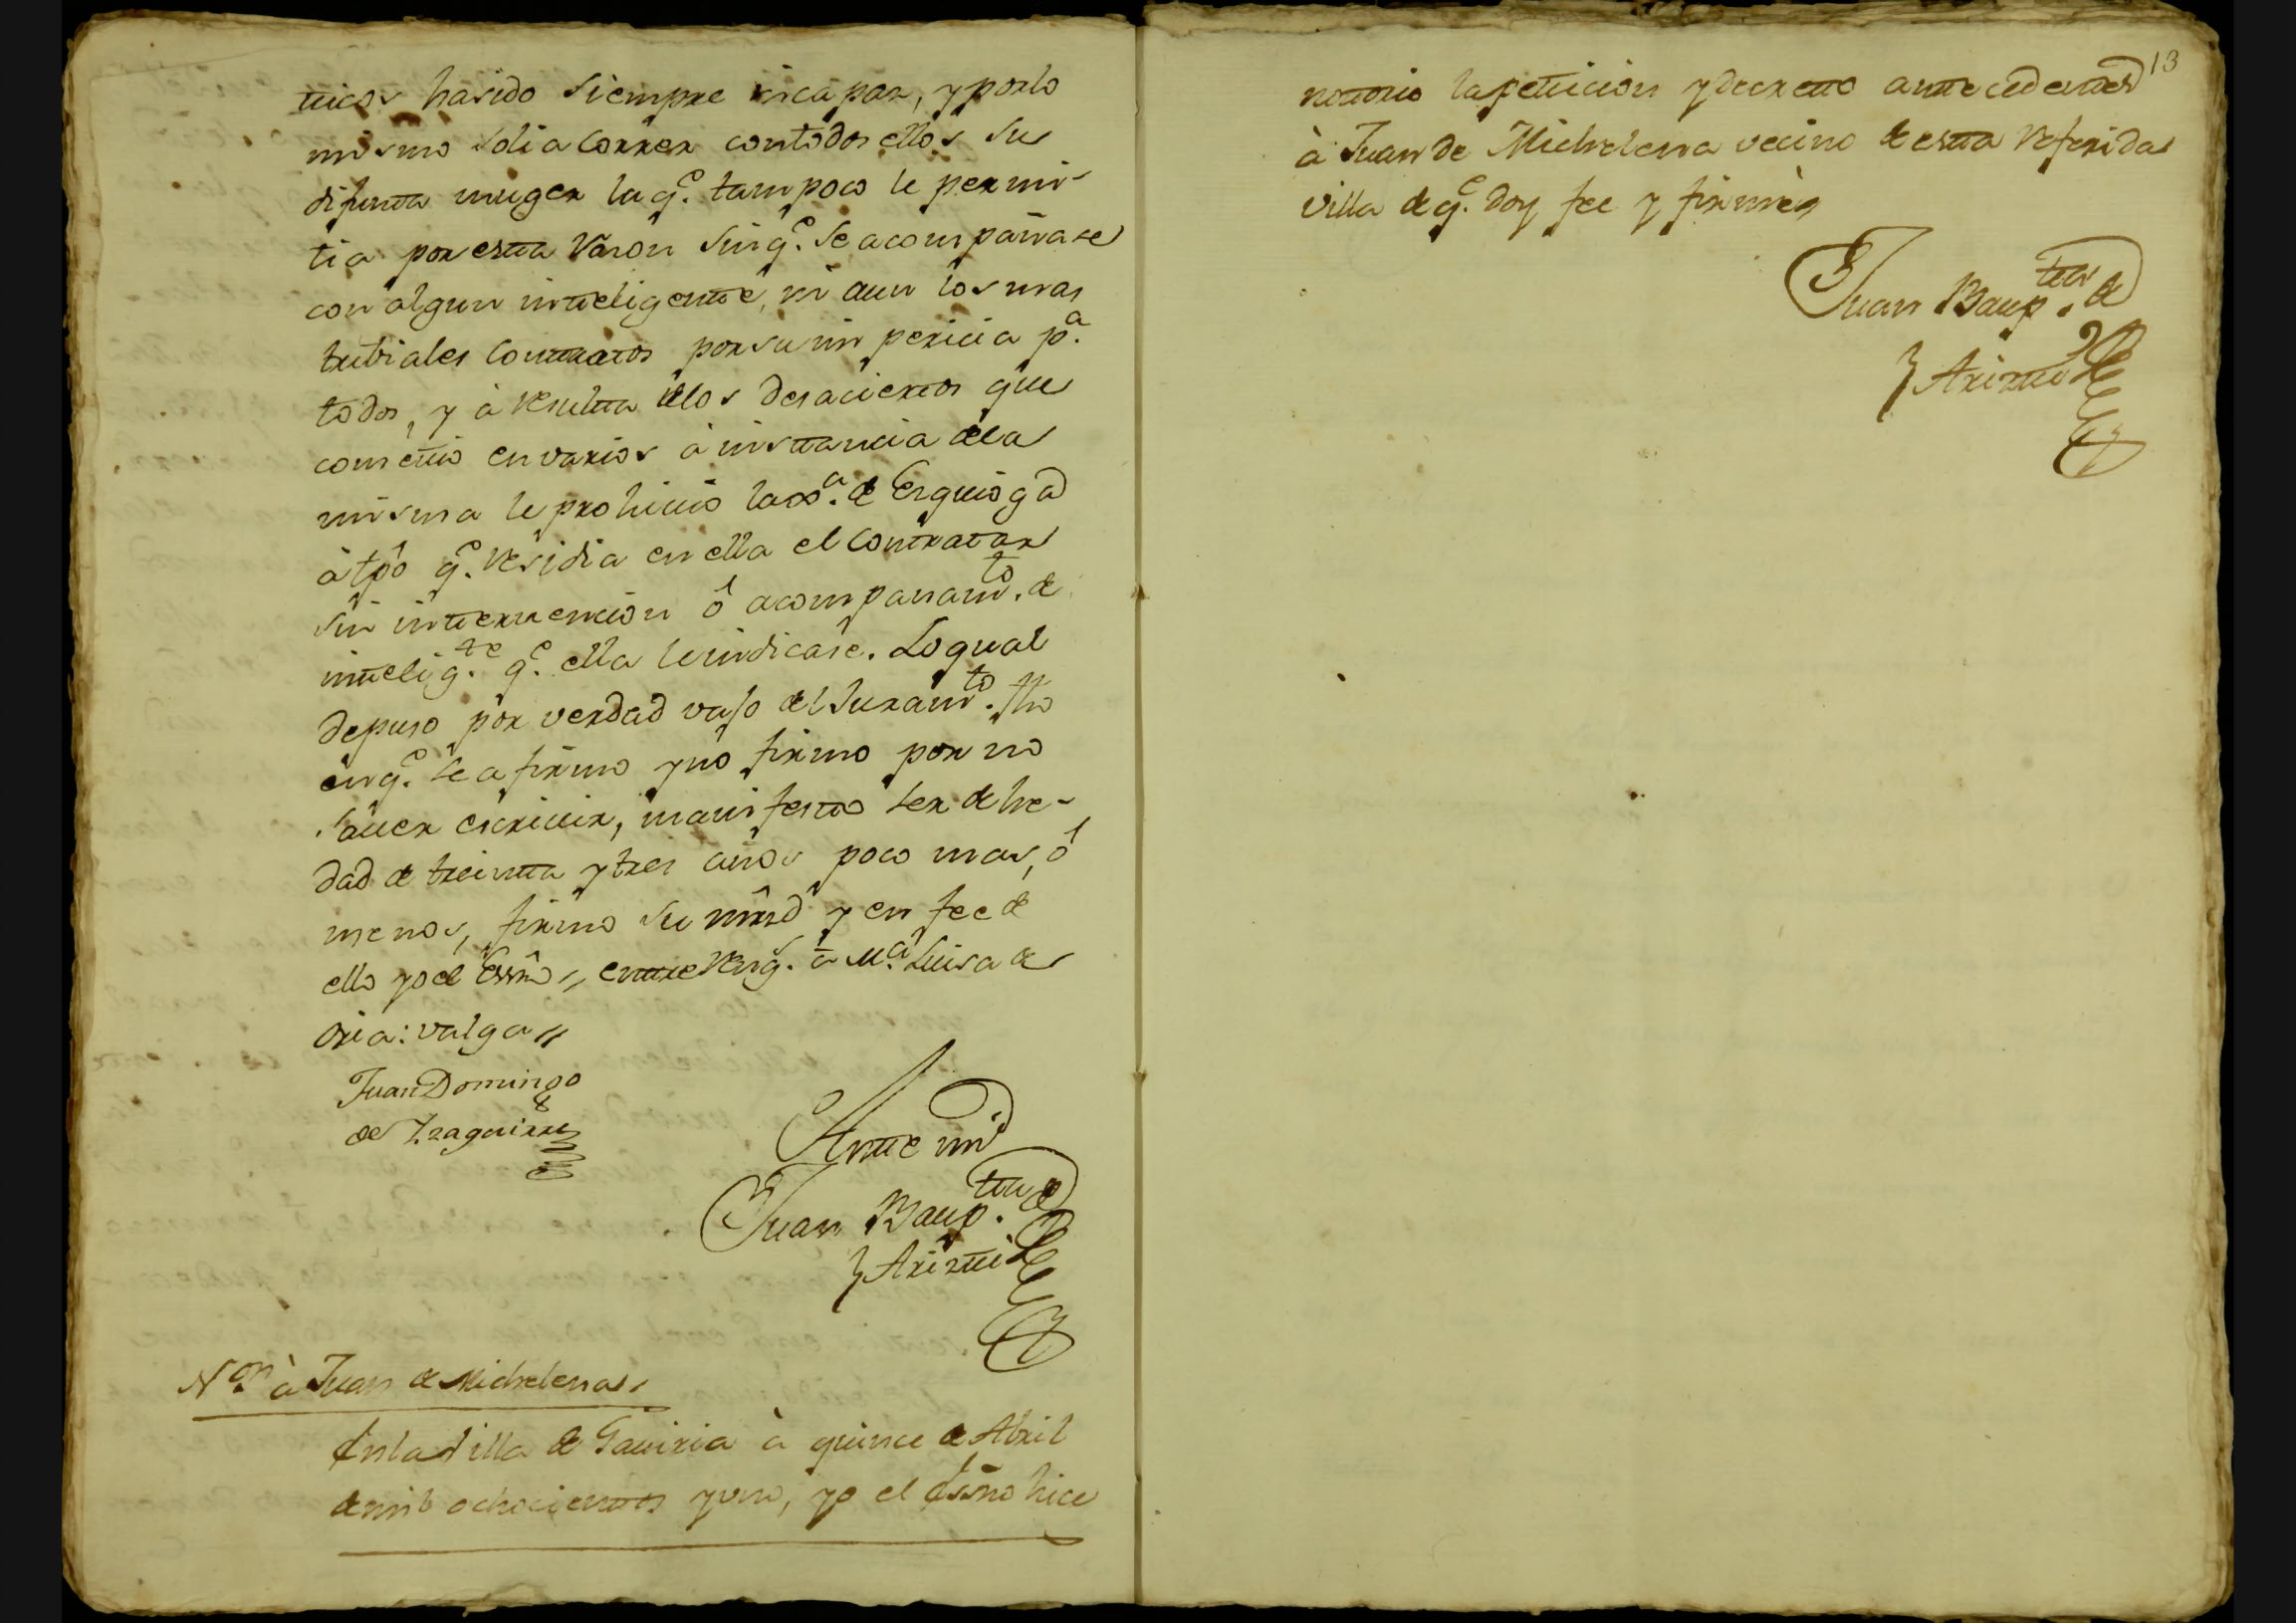 ticos hasido siempre incapaz, y porlo
mismo solia correr contodos ellos su
difunta muger la q.e tampoco le permi-
tia por esta razon sin q.e se acompañase
con algun inteligente, ni aun los mas
tribiales contratos por su im pericia p.a
todos, y à resulta delos desaciertos que
cometió en varios à instancia dela
misma le prohivió la
à tpô q.e residia en ella el contratar
sin intervencion ô acompañam.to de
intelig.te q.e ella le indicase. Lo qual
depuso por verdad vajo del Juram.to fho
en q.e se afirmo y no firmo por no
saver escrivir, manifesto ser de he-
dad de treinta y tres años poco mas, ô
menos, firmo su mrd y en fee de
ello yo el Essno, entre Reng.s à M.a Luisa de
oria: valga
Juan Domingo
de Yzaguirre
Ante mi
Juan Baup.ta de
Arizti
N.on à Juan de Michelena
En la Villa de Gaviria à quince de Abril
de mil ochocientos y uno, yo el Essno hice
13
notorio la peticion y decreto antecedentes
à Juan de Michelena vecino de esta referida
villa de q.e doy fee y firmè
Juan Baup.ta de
Arizti